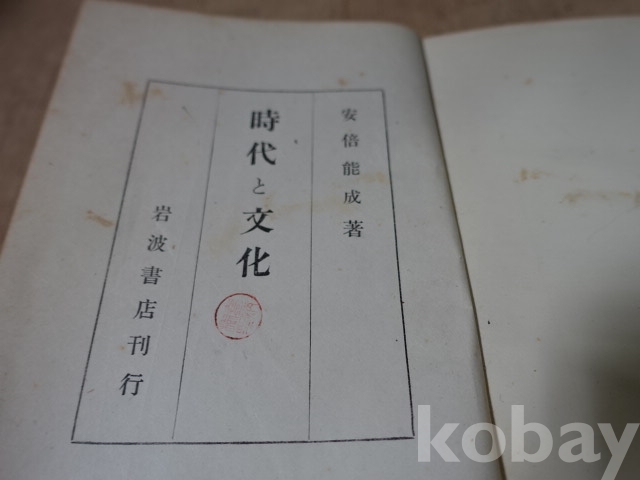 安倍能成著
時代と文化
岩波書店刊行
kobay